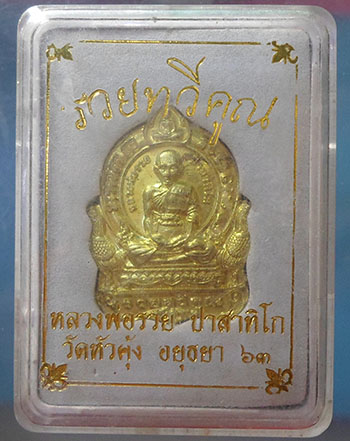 รวยทวีคูณ
หลวงพ่อรวย ปาสาทิโก
วัดหัวคุ้ง อยุธยา ๖๓